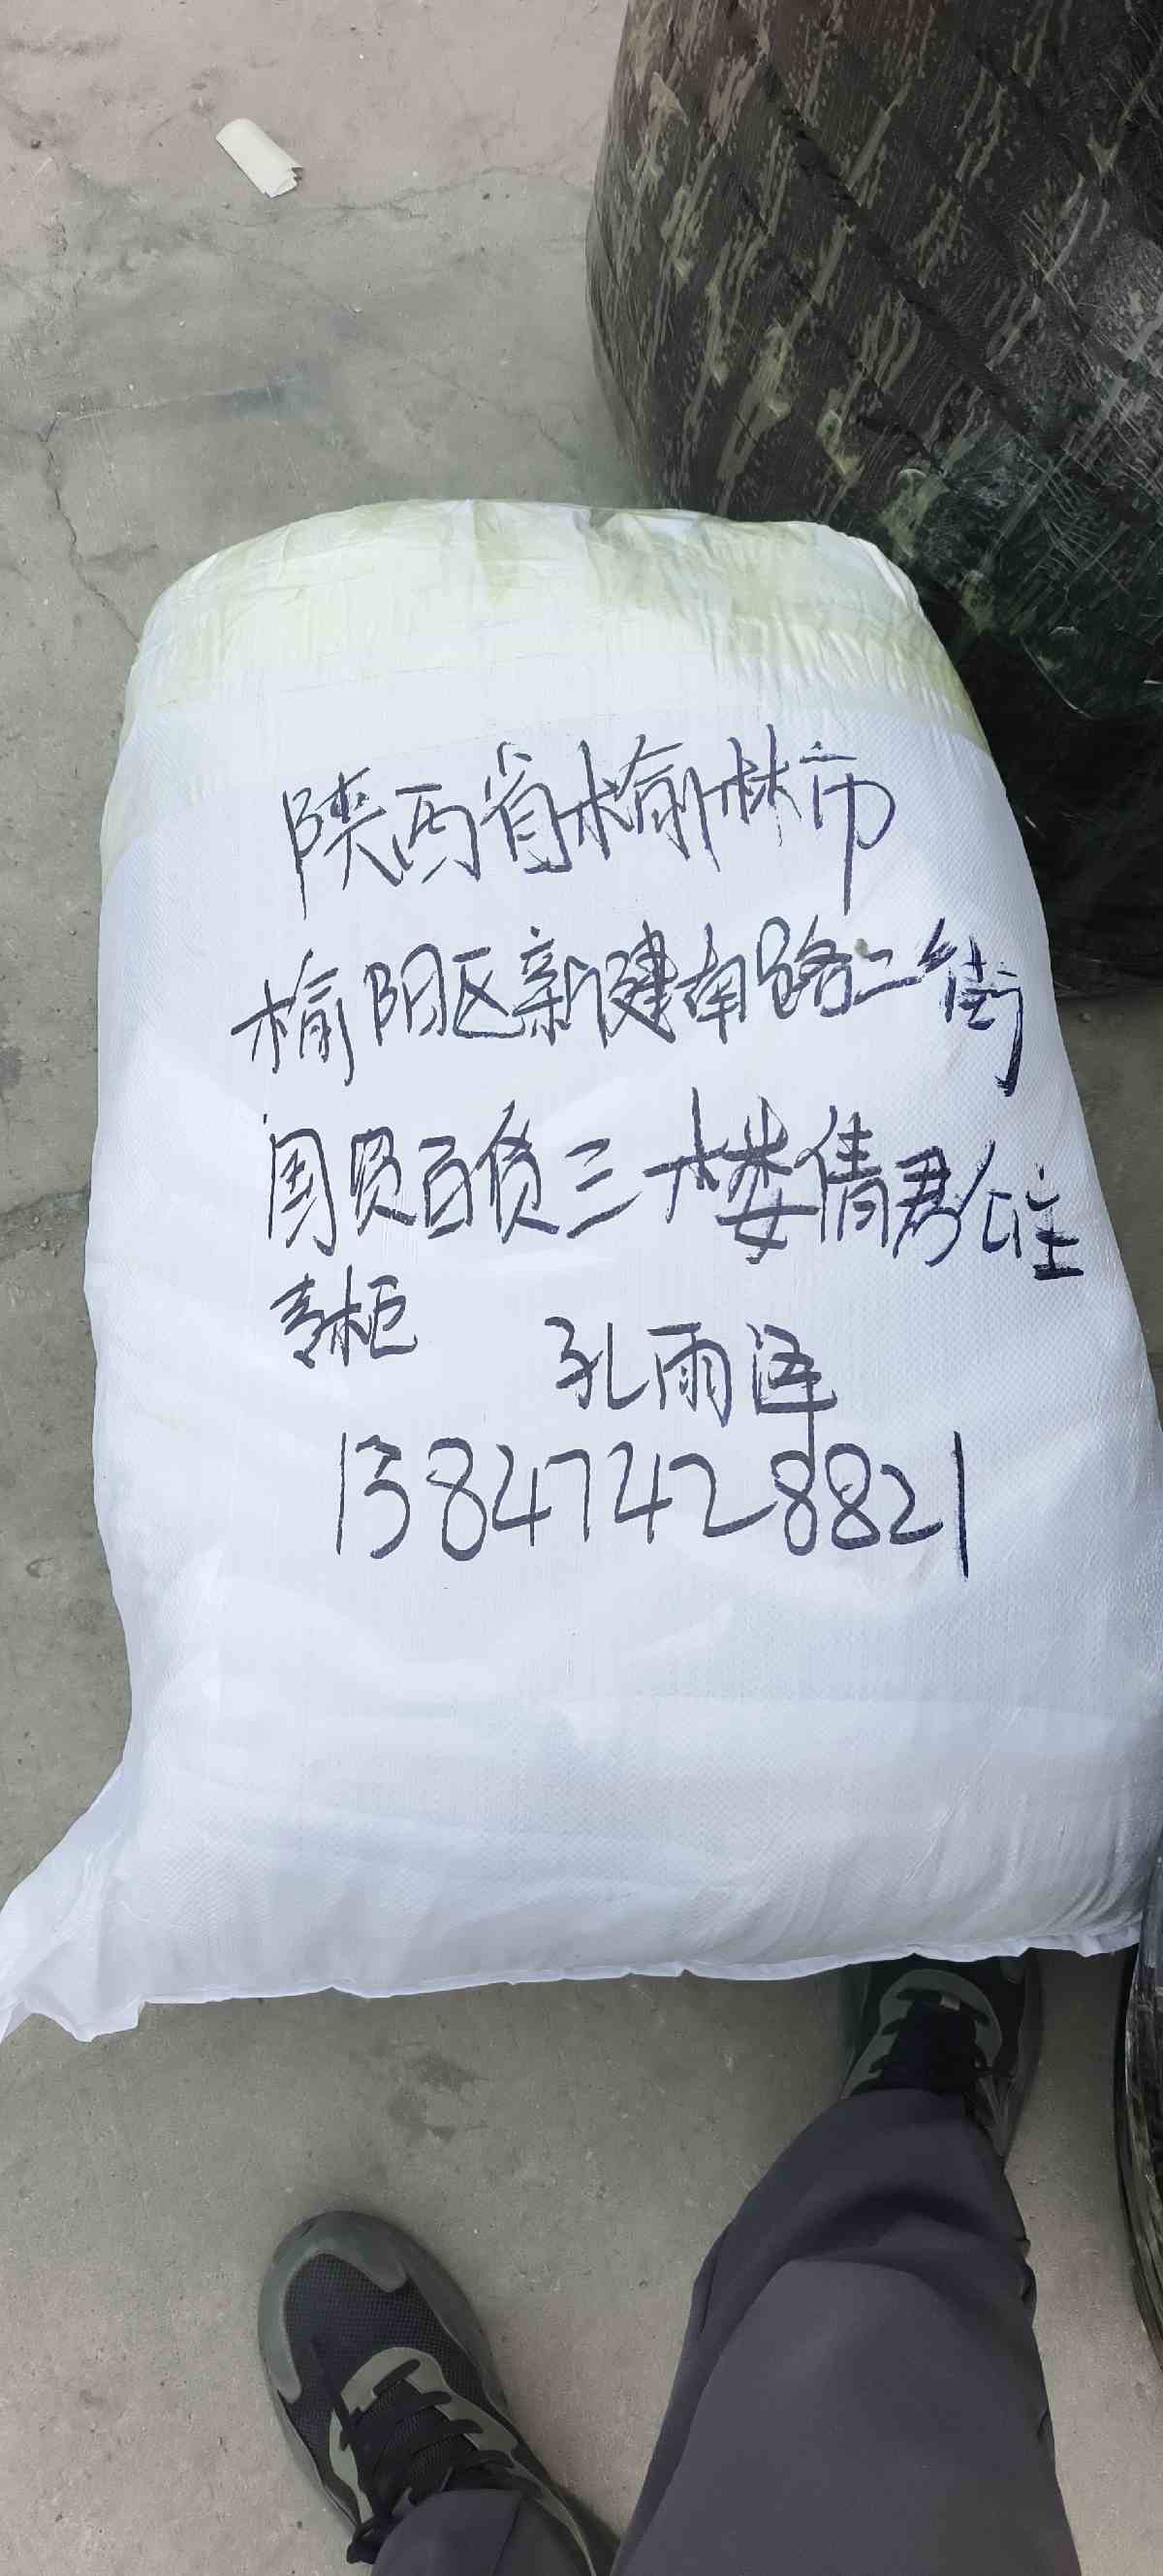 陕西省榆林市
榆阳区新建南路二街
国贸百货三楼倩君公主
专柜 孔雨泽
13847428821